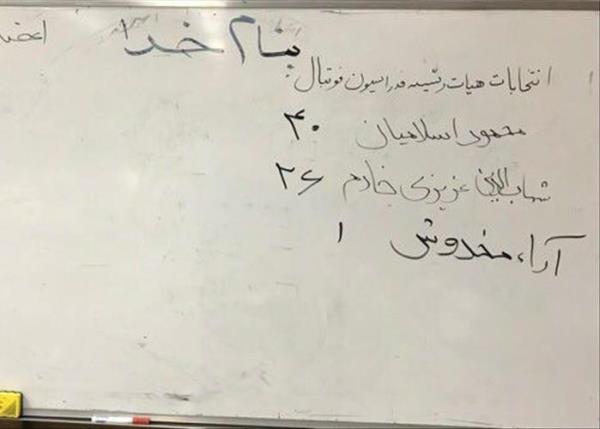 بنام خدا
انتخابات هیات رئیسه فدراسیون فوتبال:
محمود اسلامیان ۴۰
شهاب الدین عزیزی خادم ۲۶
آراء مخدوش ۱